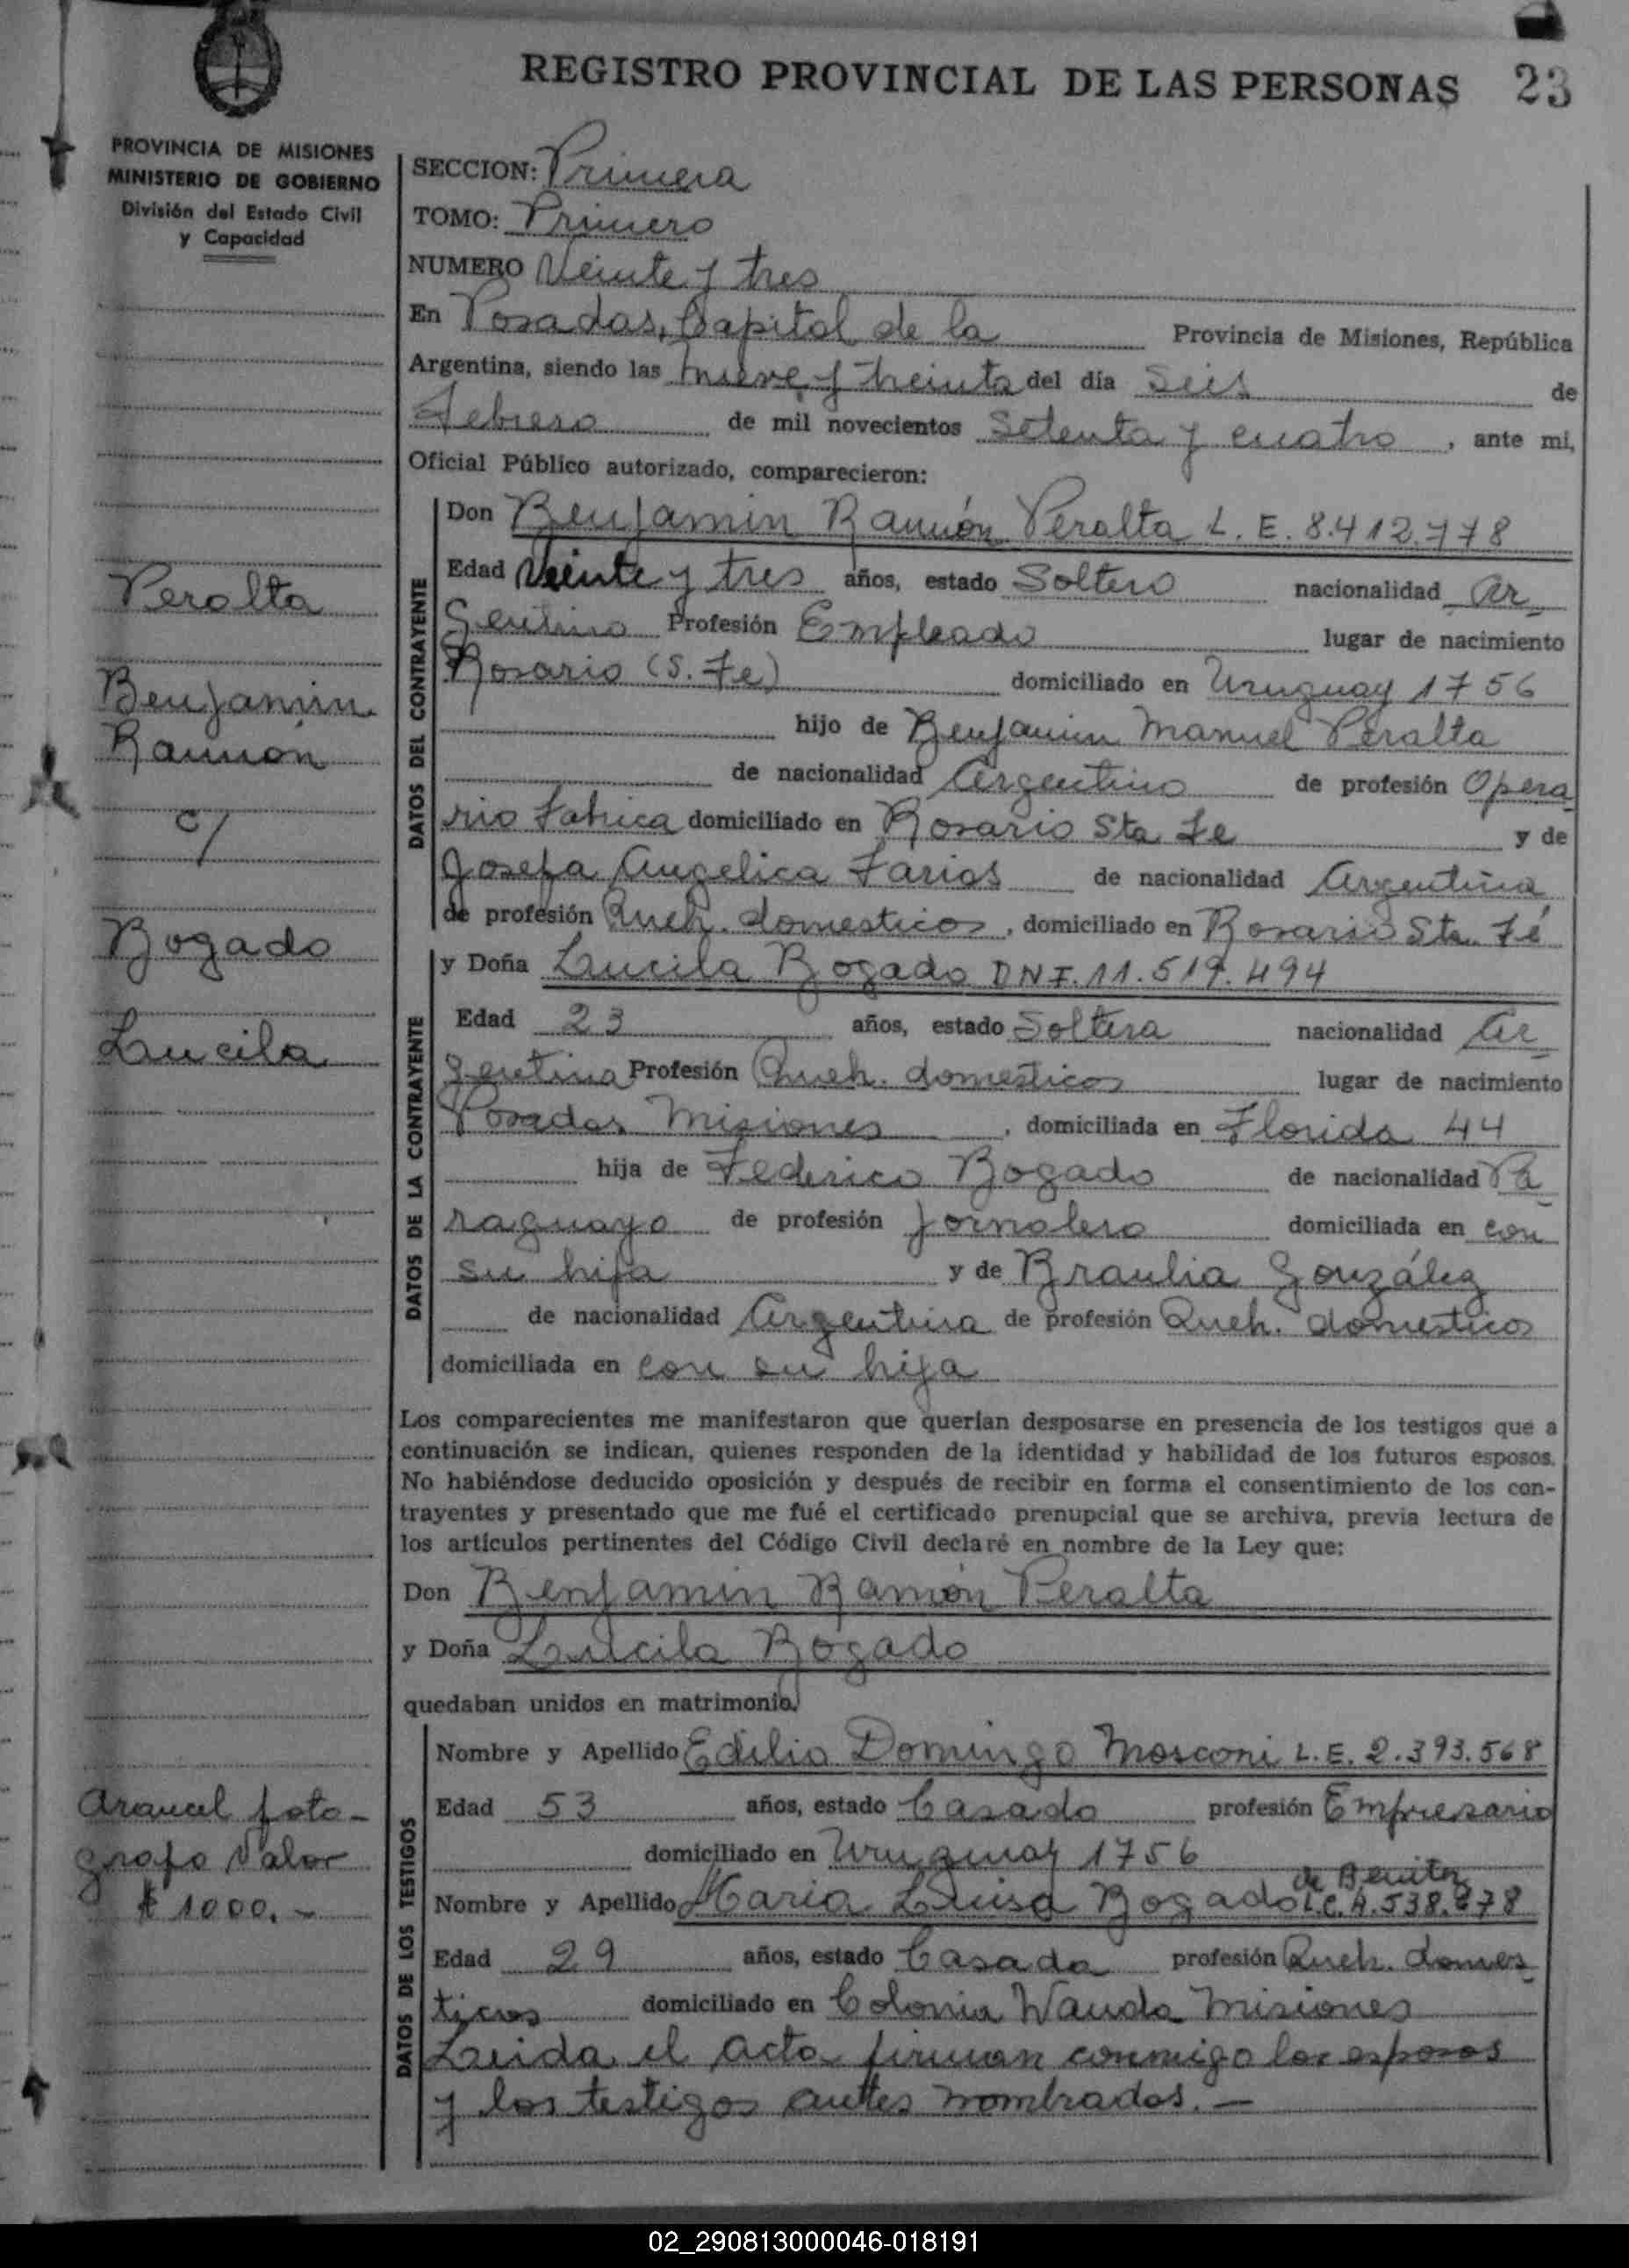 REGISTRO PROVINCIAL DE LAS PERSONAS 23
PROVINCIA DE MISIONES
MINISTERIO DE GOBIERNO
División del Estado Civil
y Capacidad
SECCION: Primera
TOMO: Primero
NUMERO Veinte y tres
En Posadas, Capital de la Provincia de Misiones, República
Argentina, siendo las nueve y treinta del día Seis de
Febrero de mil novecientos Setenta y cuatro, ante mi,
Oficial Público autorizado, comparecieron:
Peralta
Benjamin
Ramón
c/
Bogado
Lucila
DATOS DEL CONTRAYENTE
Don Benjamin Ramón Peralta L. E. 8.412.778
Edad Veinte y tres años, estado Soltero nacionalidad Ar_
gentino Profesión Empleado lugar de nacimiento
Rosario (S. Fe) domiciliado en Uruguay 1756
hijo de Benjamin Manuel Peralta
de nacionalidad Argentino de profesión Opera_
rio Fabrica domiciliado en Rosario Sta Fe y de
Josefa Angelica Farias de nacionalidad Argentina
de profesión Queh. domesticos, domiciliado en Rosario Sta. Fé
DATOS DE LA CONTRAYENTE
y Doña Lucila Bogado DNI. 11.519.494
Edad 23 años, estado Soltera nacionalidad Ar_
gentina Profesión Queh. domesticos lugar de nacimiento
Posadas Misiones, domiciliada en Florida 44
hija de Federico Bogado de nacionalidad Pa_
raguayo de profesión Jornalero domiciliada en con
su hija y de Braulia González
de nacionalidad Argentina de profesión Queh. domesticos
domiciliada en con su hija
Los comparecientes me manifestaron que querían desposarse en presencia de los testigos que a
continuación se indican, quienes responden de la identidad y habilidad de los futuros esposos.
No habiéndose deducido oposición y después de recibir en forma el consentimiento de los con-
trayentes y presentado que me fué el certificado prenupcial que se archiva, previa lectura de
los artículos pertinentes del Código Civil declaré en nombre de la Ley que:
Don Benjamin Ramón Peralta
y Doña Lucila Bogado
quedaban unidos en matrimonio.
Arancel foto-
grafo Valor
$ 1000.-
DATOS DE LOS TESTIGOS
Nombre y Apellido Edilio Domingo Mosconi L.E. 2.393.568
Edad 53 años, estado Casado profesión Empresario
domiciliado en Uruguay 1756
de Benitez
Nombre y Apellido Maria Luisa Bogado L.C.
Edad 29 años, estado Casada profesión Queh. domes_
ticos domiciliado en Colonia Wanda Misiones
Leida el acta firman conmigo los esposos
y los testigos antes nombrados.-
02_290813000046-018191